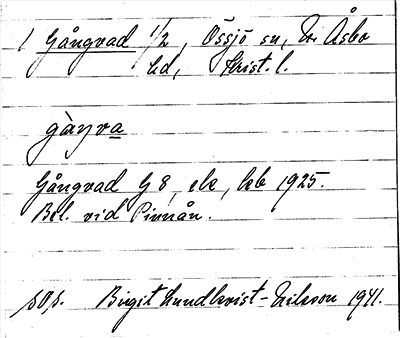 1 Gångvad 1/2, Össjö sn, N. Åsbo
hd, Krist. l.
gàŋva
Gångvad G 8, ek, kb 1925.
Bel. vid Pinnån.
sOp. Birgit Lundkvist-Nilsson 1941.